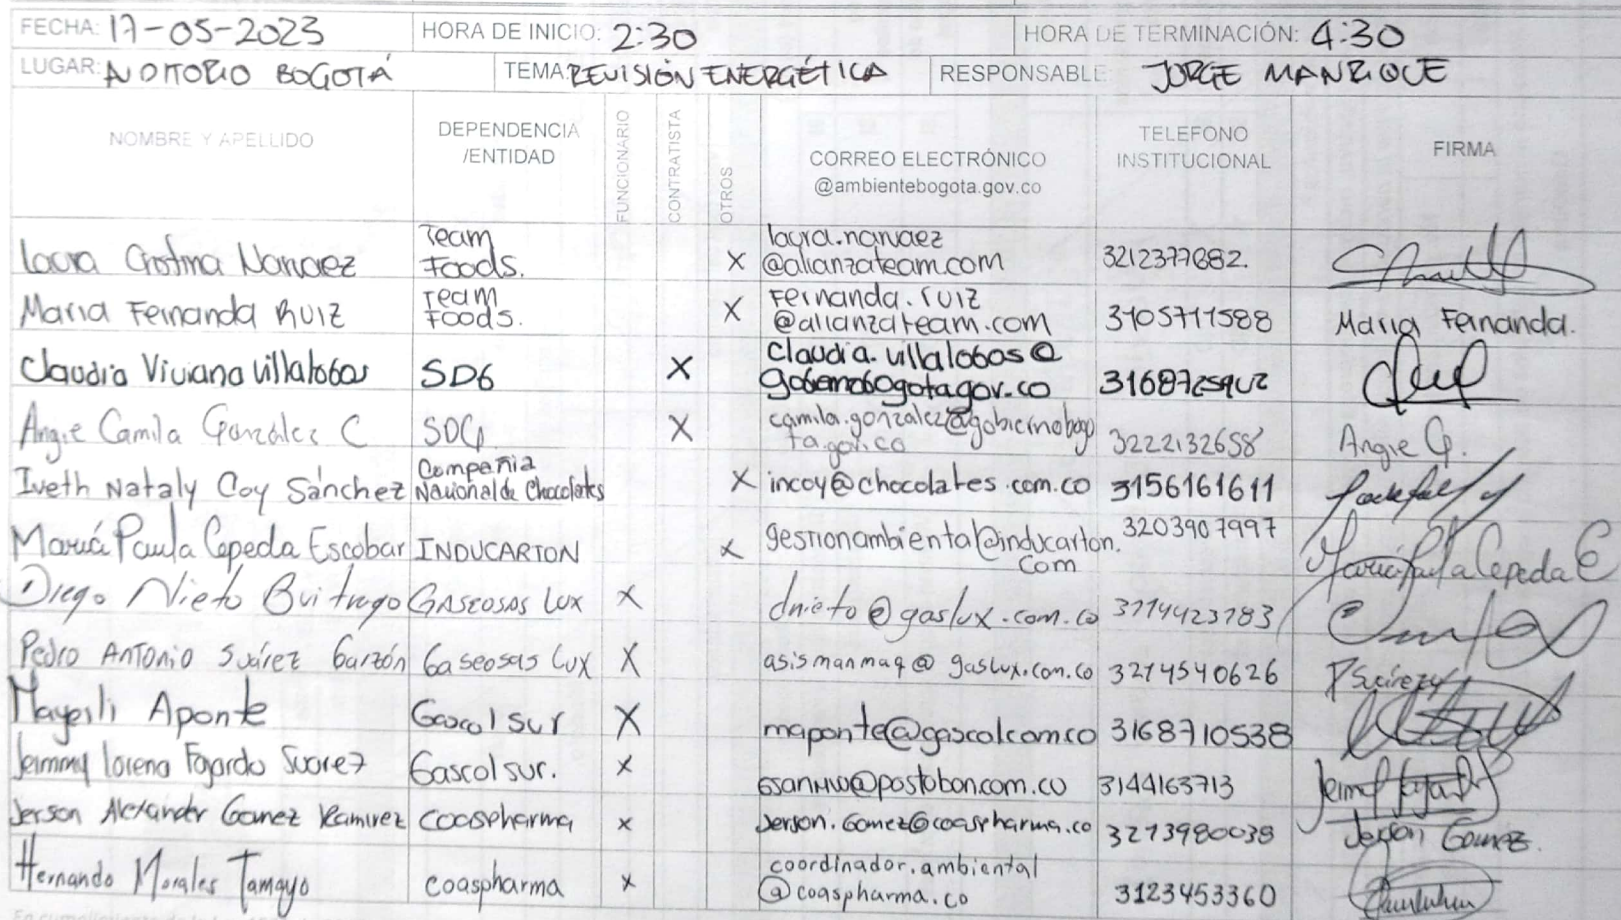 FECHA: 17-05-2023 HORA DE INICIO: 2:30 HORA DE TERMINACIÓN: 4:30
LUGAR: AUDITORIO BOGOTÁ TEMA: REVISIÓN ENERGÉTICA RESPONSABLE: JORGE MANRIQUE
NOMBRE Y APELLIDO DEPENDENCIA /ENTIDAD FUNCIONARIO CONTRATISTA OTROS CORREO ELECTRÓNICO @ambientebogota.gov.co TELEFONO INSTITUCIONAL FIRMA
Laura Cristina Narvaez Team Foods. X laura.narvaez @alianzateam.com 3212377682.
Maria Fernanda Ruiz Team Foods. X Fernanda.ruiz @alianzateam.com 3105711588 Maria Fernanda.
Claudia Viviana Villalobos SDG X Claudia.villalobos@ gobiernobogota.gov.co
Angie Camila González C SDG X camila.gonzalez@gobiernobogo ta.gov.co 3222132658 Angie G.
Iveth Nataly Coy Sánchez Compañia Nacional de Chocolates X incoy@chocolates.com.co 3156161611
María Paula Cepeda Escobar INDUCARTON X gestionambiental@inducarton. com 3203907997 María Paula Cepeda E
Diego Nieto Buitrago Gaseosas Lux X dnieto@gaslux.com.co 3114423783
Pedro Antonio Suárez Garzón Gaseosas Lux X asismanmaq@gaslux.com.co 3214540626 P Suárez
Mayerli Aponte Gascol sur X maponte@gascol.com.co 3168710538
Jeimmy Lorena Fajardo Suarez Gascol sur. X 3144163713
Jerson Alexander Gomez Ramirez Coaspharma X Jerson.Gomez@coaspharma.co 3213980038 Jerson Gomez.
Hernando Morales Tamayo coaspharma X coordinador.ambiental @coaspharma.co 3123453360